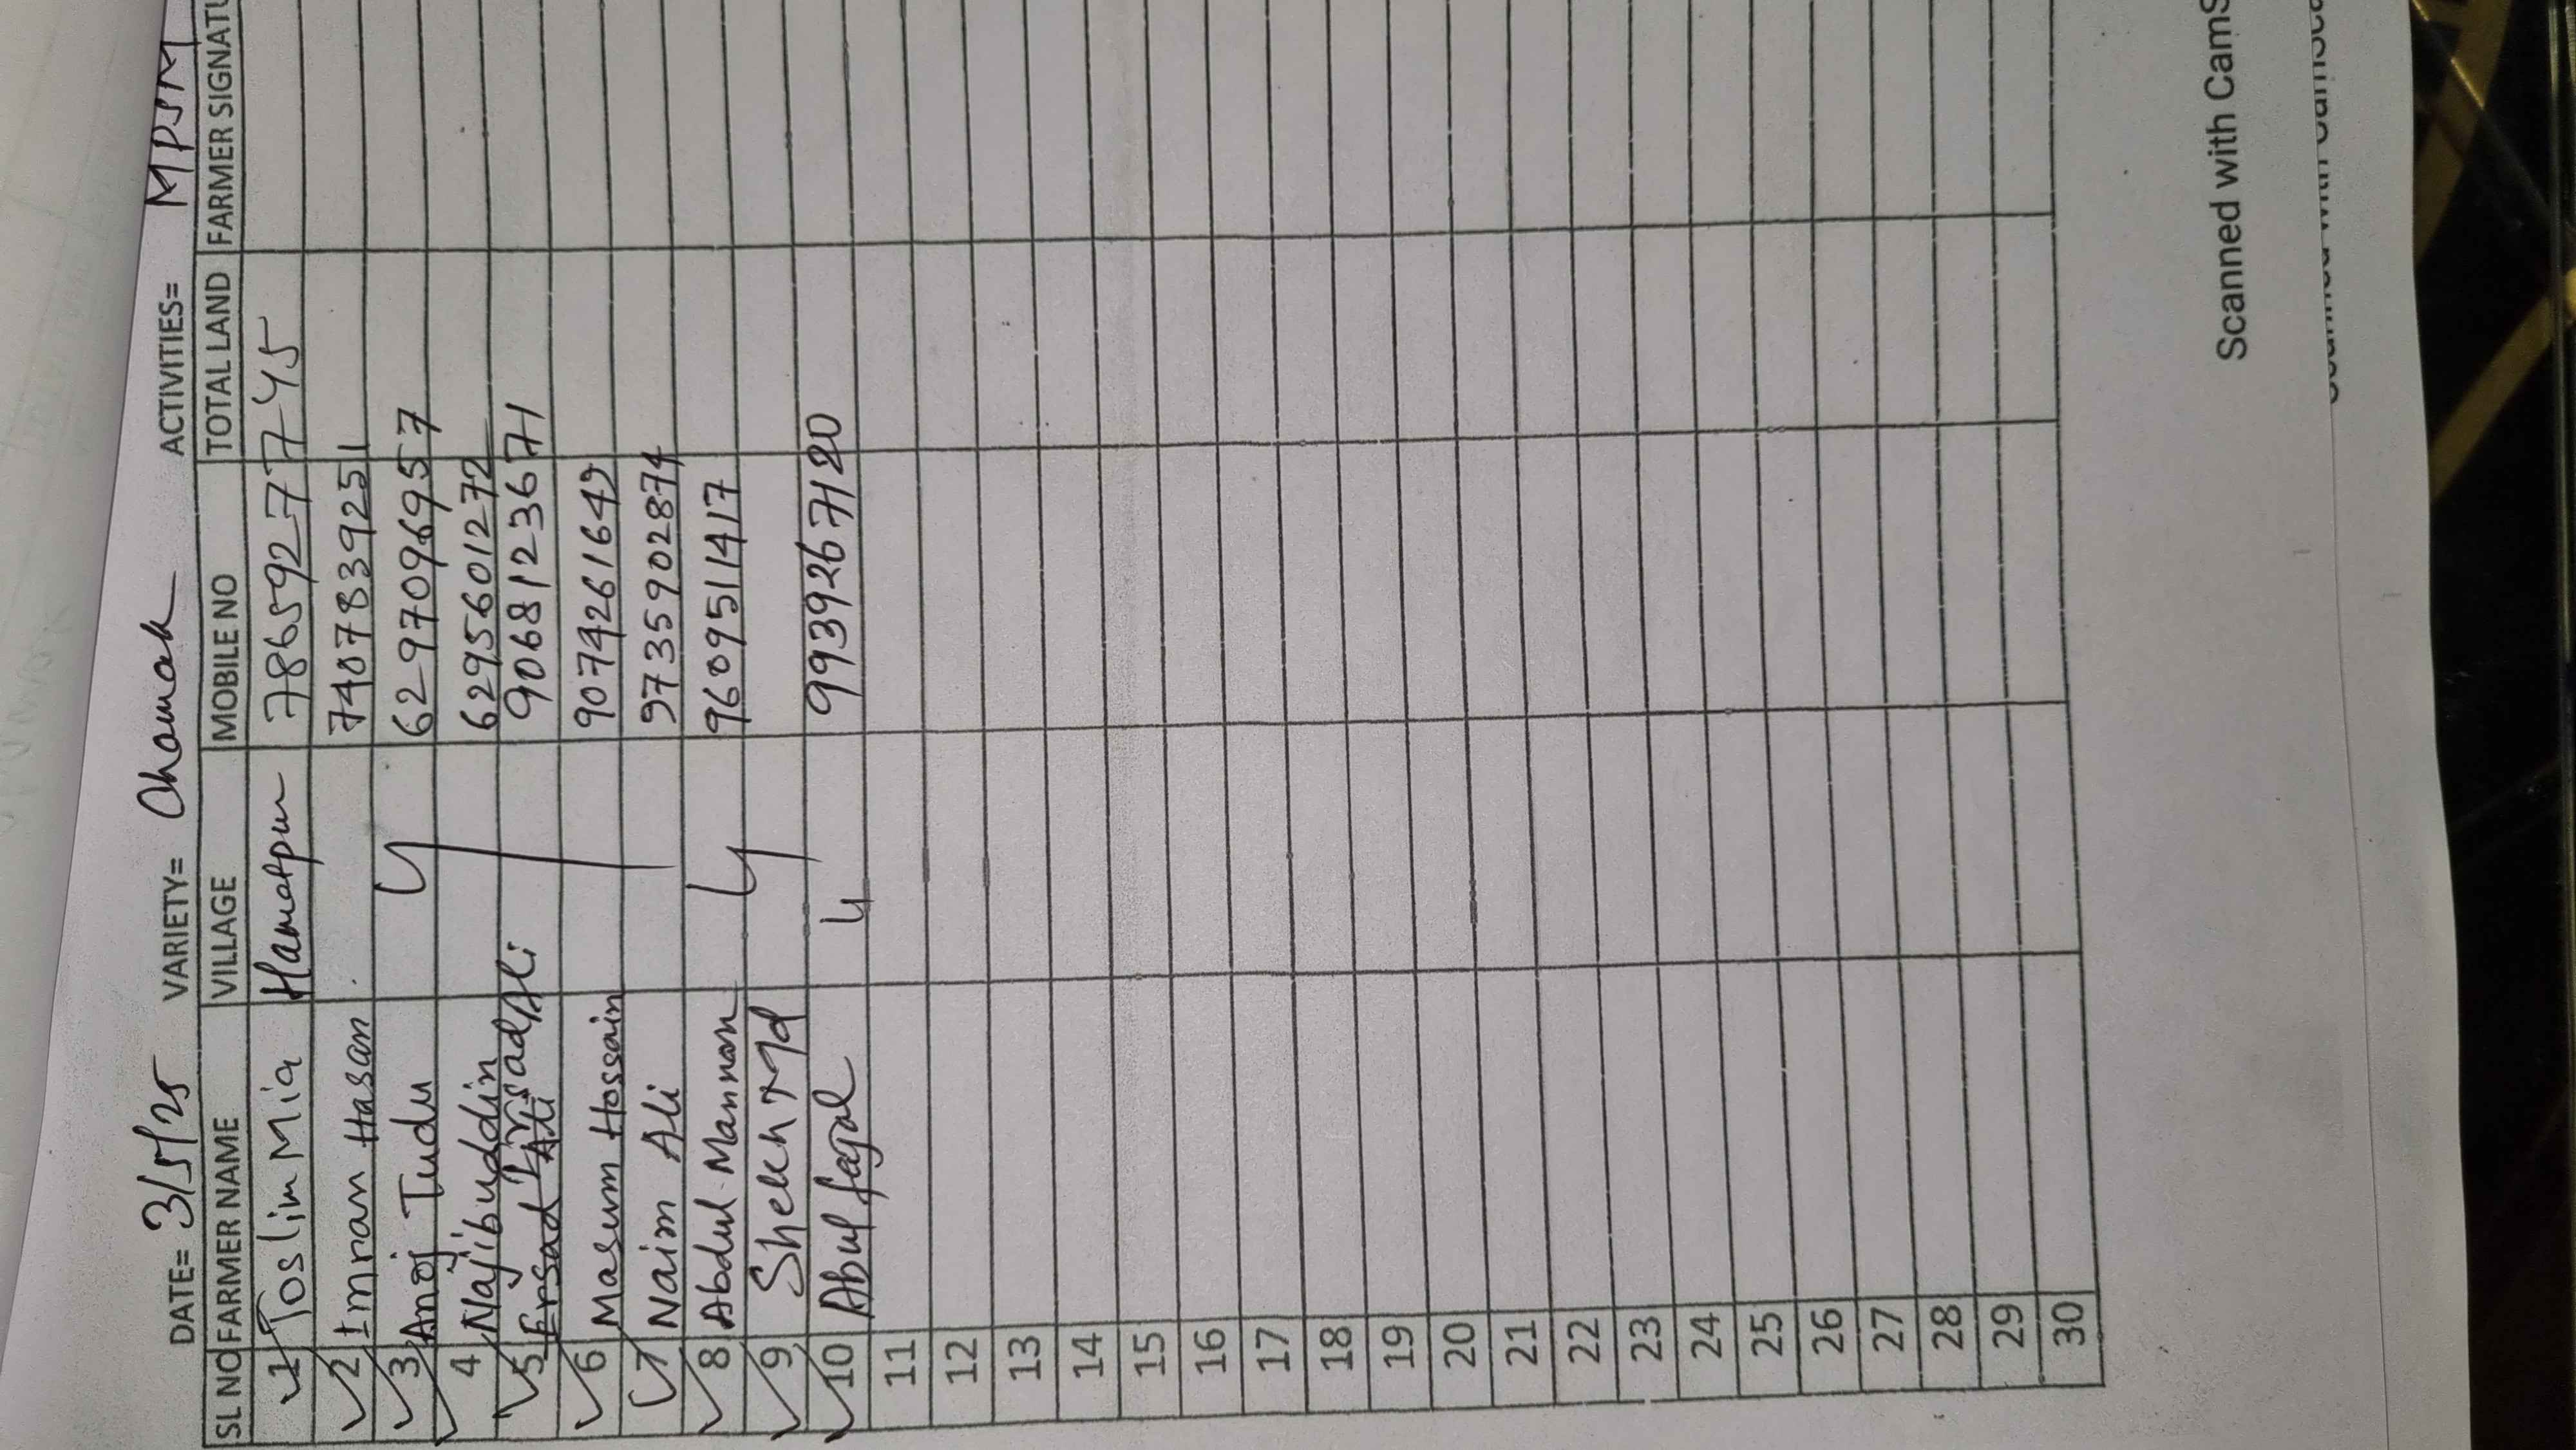 DATE= 3/5/25 VARIETY= Chamak ACTIVITIES= MPSM
SL NO FARMER NAME VILLAGE MOBILE NO TOTAL LAND FARMER SIGNATU
1 Toslim Mia Hamatpur 7865927745
2 Imran Hasan 7407839251
3 Anoj Tudu 6297096957
4 Najibuddin 6295601272
5 Ersad Ali Irsad Ali 9068123671
6 Masum Hossain 9074261649
7 Naim Ali 9735902874
8 Abdul Mannan 9609511417
9 Shekh Md
10 Abul fazal 9939267120
11
12
13
14
15
16
17
18
19
20
21
22
23
24
25
26
27
28
29
30
Scanned with CamS